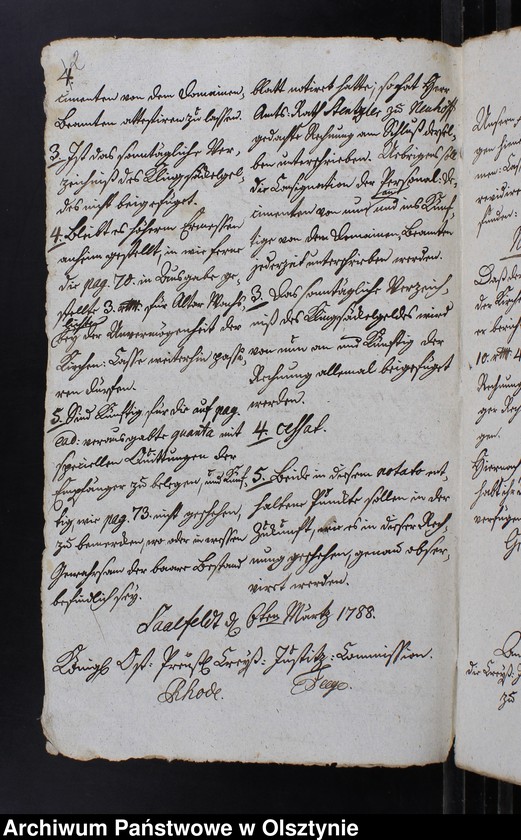 4.
cumenten von dem Domainen-
Beamten attestiren zu lassen.
3. Ist das sonntägliche Ver-
zeichniß des Klingsäckelgel-
des nicht beigefüget.
4. Bleibt es höherm Ermessen
anheim gestellt, in wie ferne
die pag. 70. in Ausgabe ge-
stellte 3. rthl. für Altar Wachs-
lichter
bey der Unvermögenheit der
Kirchen-Casse weiterhin passi-
ren dürfen.
5. Sind künftig für die auf pag.
ead: verausgabte quanta mit
speciellen Quittungen der
Empfänger zu belegen, und künf-
tig, wie pag. 73. nicht geschehen,
zu bemerken, wo oder in wessen
Gewahrsam der baare Bestand
befindlich sey.
blatt notiret hatte; so hat Herr
Amts-Rath Stentzler zu Neuhoff
gedachte Rechnung am Schluß dersel-
ben unterschrieben. Uebrigens soll
die Consignation der Personal-Do-
cumenten von nun an und ins Künf-
tige von dem Domainen-Beamten
jederzeit unterschrieben werden.
3. Das sonntägliche Verzeich-
niß des Klingsäckelgeldes wird
von nun an und künftig der
Rechnung allemal beigefüget
werden.
4. cessat.
5. Beide in diesem notato ent-
haltene Punkte sollen in der
Zukunft, wie es in dieser Rech-
nung geschehen, genau obser-
virt werden.
Saalfeldt d 6ten Martz 1788.
Königl. Ost-Preuß. Creyß-Justitz-Commission.
Rhode.
10. rthl. 4
Rechnung
gen.
Archiwum Państwowe w Olsztynie